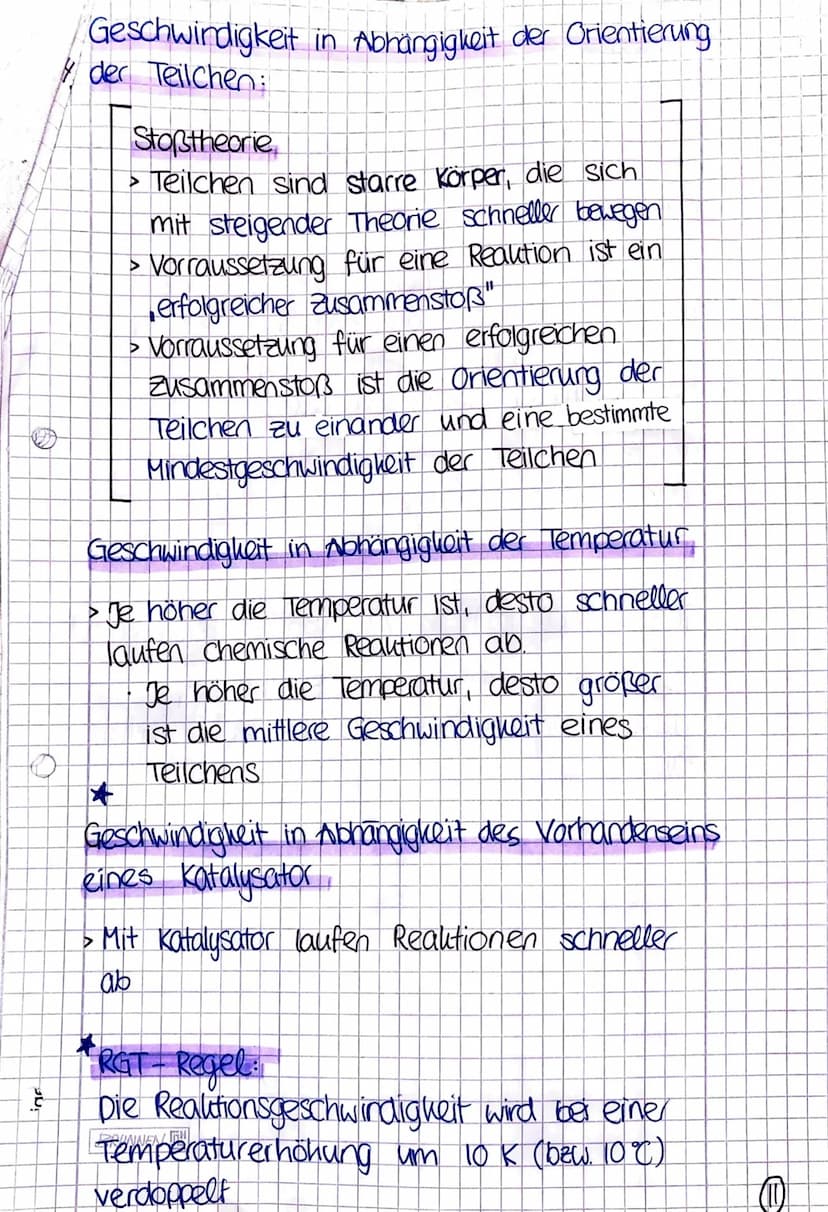 Geschwindigkeit in Abhängigkeit der Orientierung
der Teilchen:
Stoßtheorie
> Teilchen sind starre Körper, die sich
mit steigender Theorie schneller bewegen
> Vorraussetzung für eine Reaktion ist ein
„erfolgreicher Zusammenstoß"
> Vorraussetzung für einen erfolgreichen
Zusammenstoß ist die Orientierung der
Teilchen zu einander und eine bestimmte
Mindestgeschwindigkeit der Teilchen
Geschwindigkeit in Abhängigkeit der Temperatur
> Je höher die Temperatur ist, desto schneller
laufen chemische Reaktionen ab.
· Je höher die Temperatur, desto größer
ist die mittlere Geschwindigkeit eines
Teilchens
Geschwindigkeit in Abhängigkeit des Vorhandenseins
eines Katalysator
> Mit Katalysator laufen Reaktionen schneller
ab
RGT-Regel:
Die Reaktionsgeschwindigkeit wird bei einer
Temperaturerhöhung um 10 K (bzw. 10 °C)
verdoppelt
11